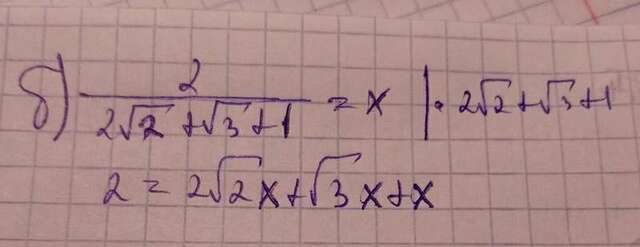 б) 2/(2√2 + √3 + 1) = x | · 2√2 + √3 + 1
2 = 2√2x + √3x + x